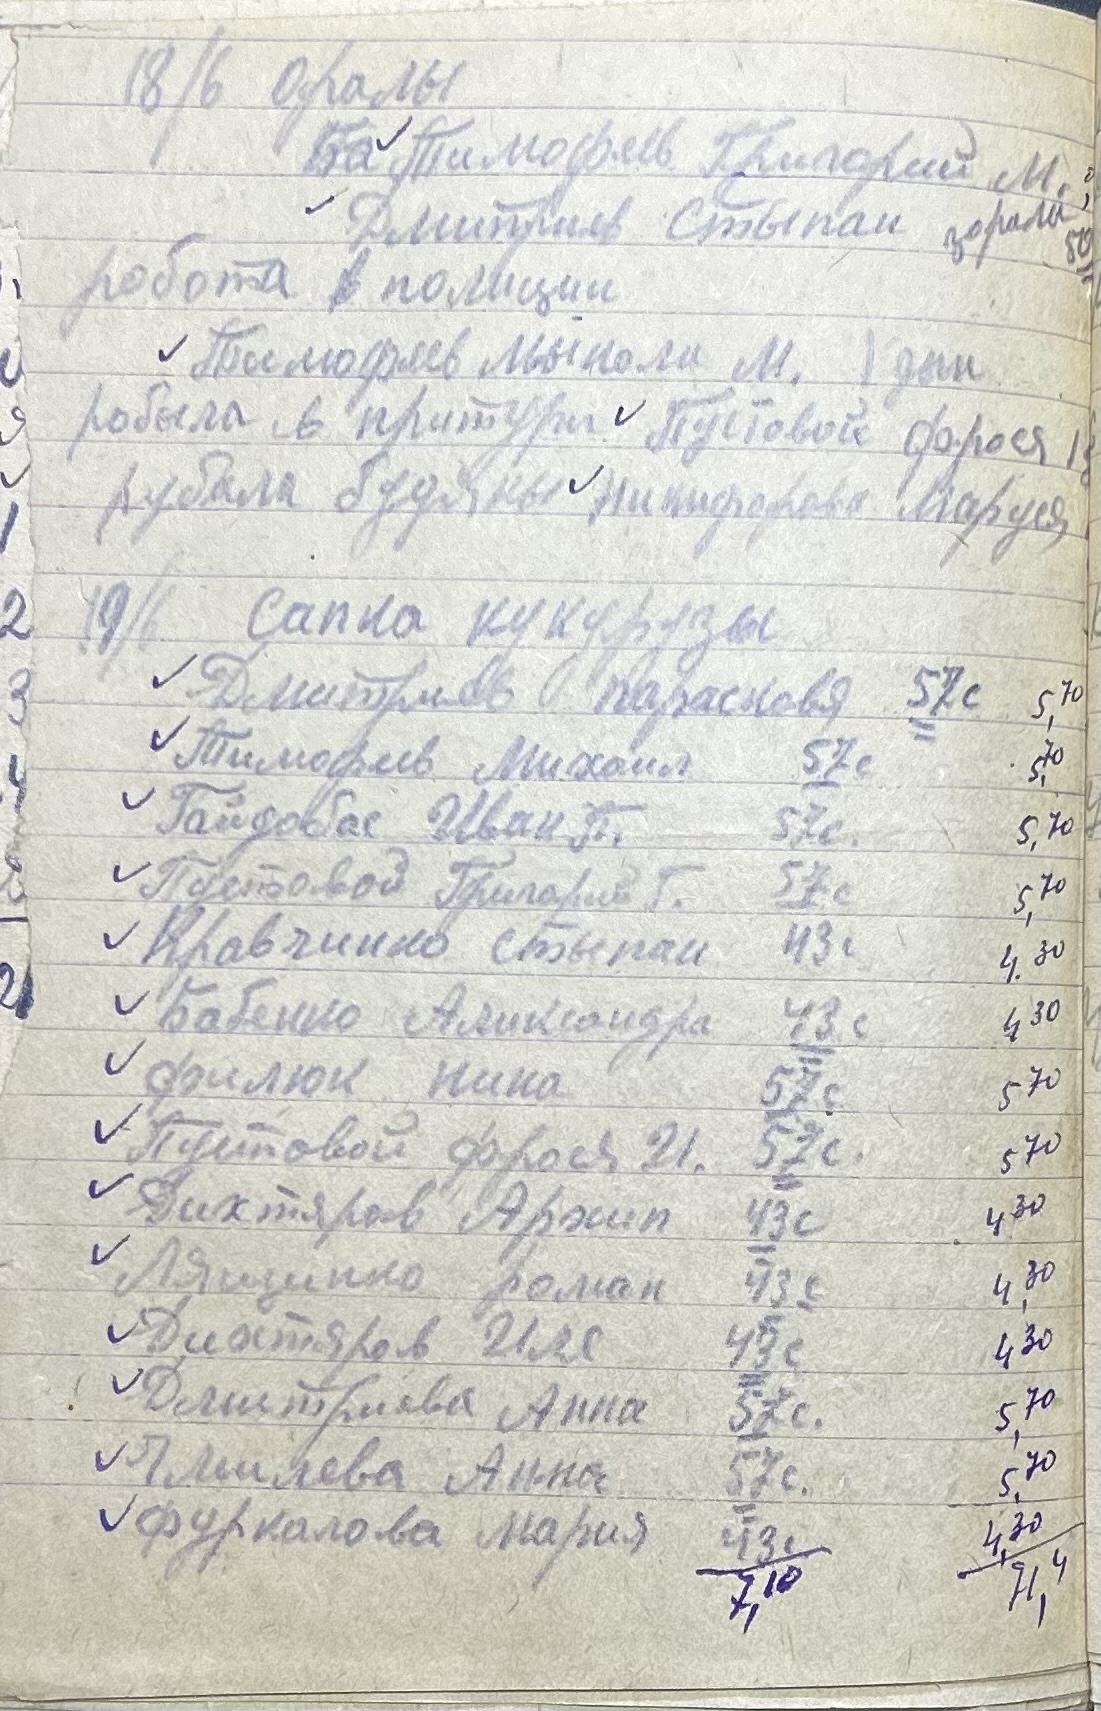 18/6 Оралы
Тимофяев Григорий М.
Дмитриев Стыпан зорали
робота в полиции
Тимофяев Мыколи М. 1 дын
робыла в притури Пустовой фрося
рубала будяны Никифорова Маруся
19/6 Сапка кукурузы
Дмитриев парасковя 57с 5,70
Тимофиев Михаил 57с 5,70
Гайдобас Иван П. 57с. 5,70
Пустовой Григорий Г. 57с 5,70
Кравчинко Стыпан 43с 4.30
Бабенко Аликсандра 43с 4 30
филюк нина 57с 5 70
Пустовой фрося И. 57с. 5 70
Дихтяров Архип 43с 4 30
Лящинко роман 43с 4,30
Дихтяров Иля 43с 4 30
Дмитриева Анна 57с. 5,70
Ямилева Анна 57с. 5,70
фуркалова мария 43с 4,30
7,10 71,4